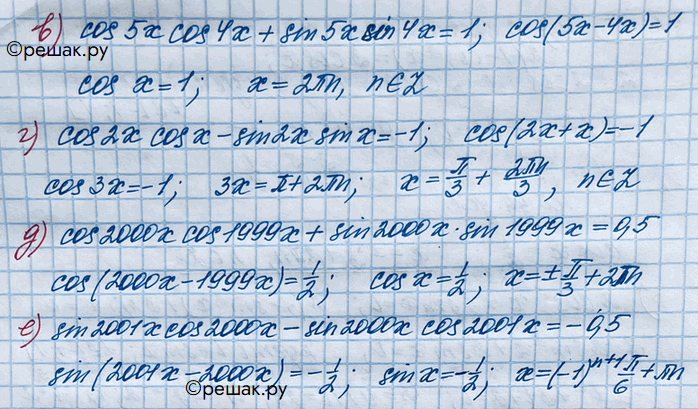 в) cos 5x cos 4x + sin 5x sin 4x = 1; cos(5x-4x)=1
©решак.ру
cos x = 1; x = 2πn, n∈Z
г) cos 2x cos x - sin 2x sin x = -1; cos(2x+x) = -1
cos 3x = -1; 3x = π + 2πn; x = π/3 + 2πn/3, n∈Z
д) cos 2000x cos 1999x + sin 2000x · sin 1999x = 0,5
cos(2000x - 1999x) = 1/2; cos x = 1/2; x = ± π/3 + 2πn
е) sin 2001x cos 2000x - sin 2000x cos 2001x = -0,5
sin(2001x - 2000x) = -1/2; sin x = -1/2; x = (-1)^(n+1) π/6 + πn
©решак.ру